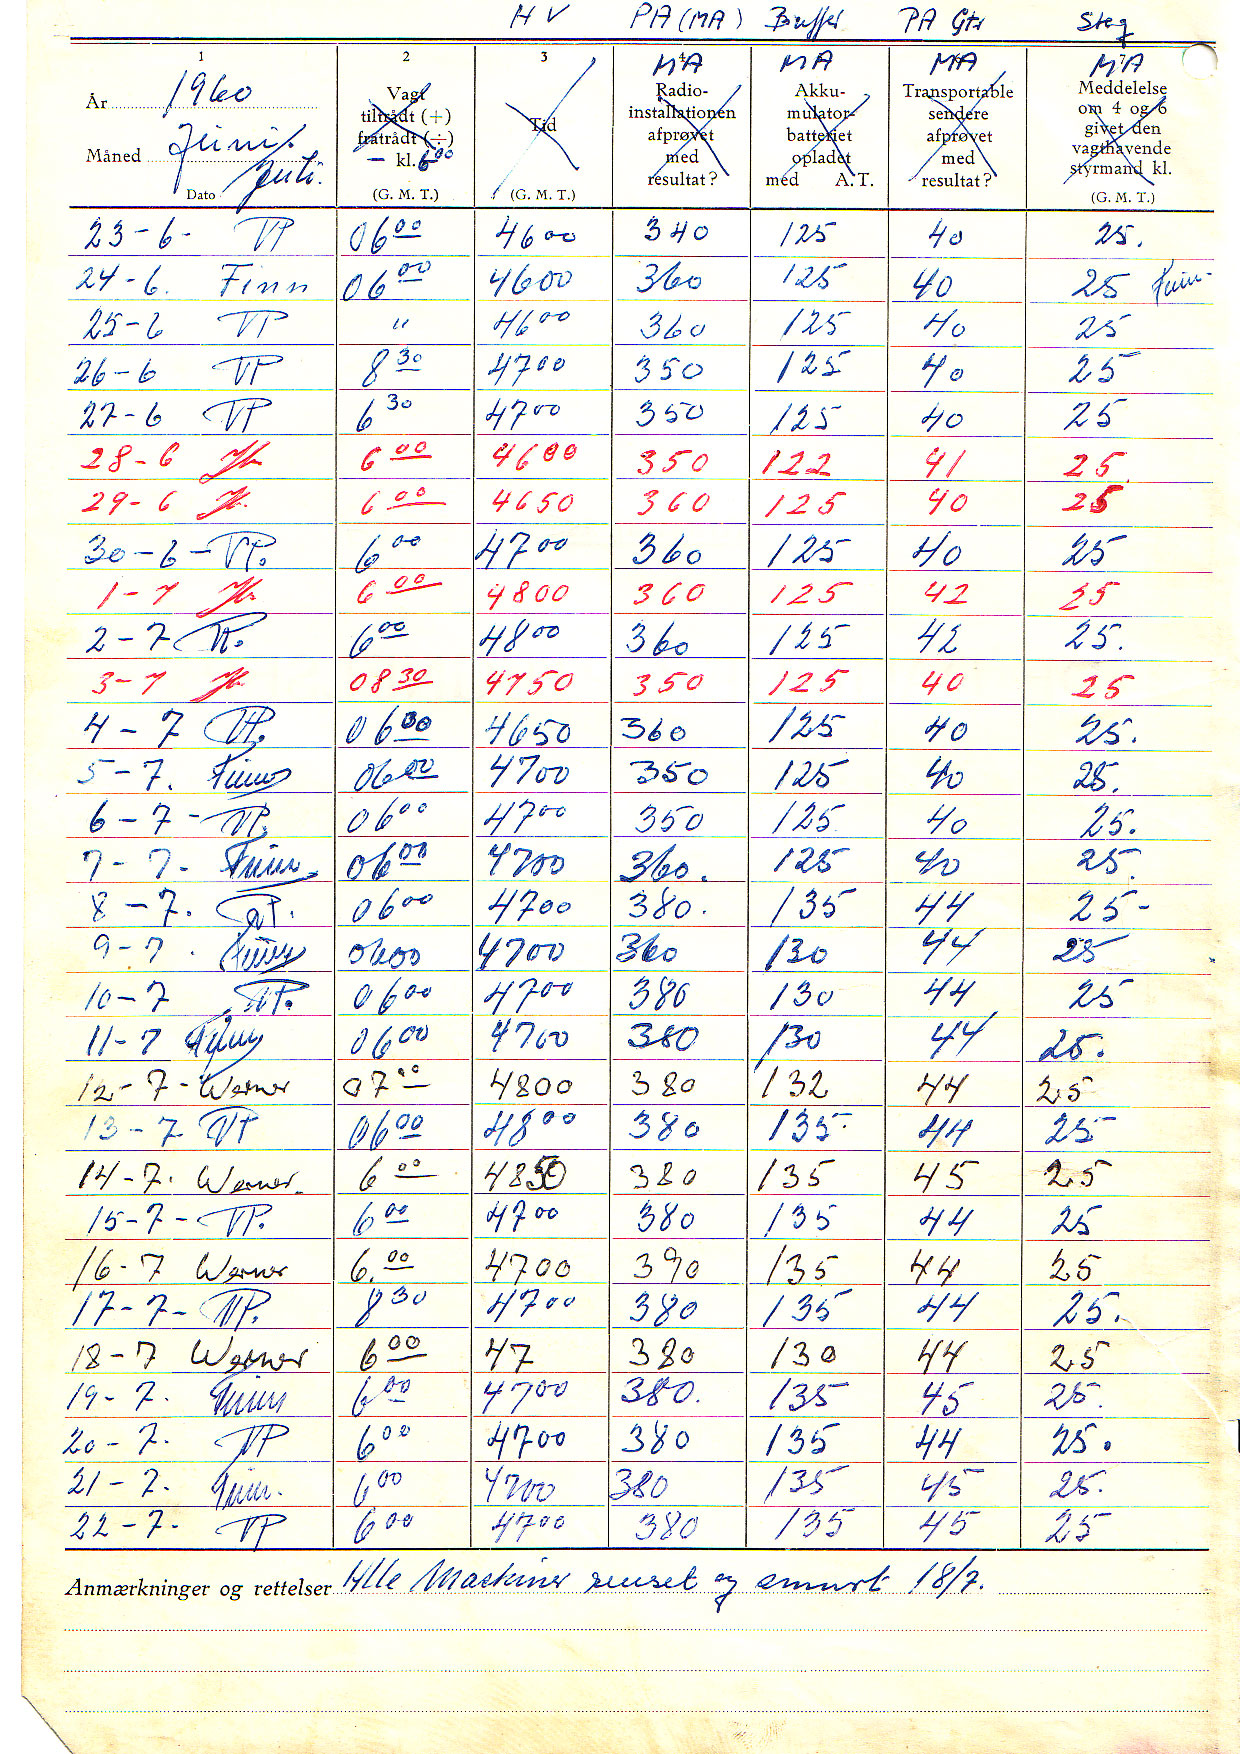 HV PA (MA) Buffer PA Gtr Steg
1 2 3 4 5 6 7
MA MA MA MA
År 1960
Måned Juni Juli.
Dato
Vagt tiltrådt (+) fratrådt (÷) – kl. 6 00 (G. M. T.)
Tid (G. M. T.)
Radio-installationen afprøvet med resultat?
Akku-mulator-batteriet opladet med A.T.
Transportable sendere afprøvet med resultat?
Meddelelse om 4 og 6 givet den vagthavende styrmand kl. (G. M. T.)
23-6- VP 06 00 4600 340 125 40 25.
24-6. Finn 06 00 4600 360 125 40 25 Finn
25-6 VP " 4600 360 125 40 25
26-6 VP 8 30 4700 350 125 40 25
27-6 VP 6 30 4700 350 125 40 25
28-6 6 00 4600 350 122 41 25
29-6 6 00 4650 360 125 40 25
30-6- VP. 6 00 4700 360 125 40 25
1-7 6 00 4800 360 125 42 25
2-7 VP. 6 00 4800 360 125 42 25.
3-7 08 30 4750 350 125 40 25
4-7 VP. 06 30 4650 360 125 40 25.
5-7. Finn 06 00 4700 350 125 40 25.
6-7- VP. 06 00 4700 350 125 40 25.
7-7- Finn 06 00 4700 360. 125 40 25.
8-7. VP. 06 00 4700 380. 135 44 25-
9-7. Finn 0600 4700 360 130 44 25
10-7 VP. 06 00 4700 380 130 44 25
11-7 Finn 06 00 4700 380 130 44 25.
12-7- Werner 07 00 4800 380 132 44 25
13-7 VP 06 00 4800 380 135 44 25
14-7. Werner. 6 00 4850 380 135 45 25
15-7- VP. 6 00 4700 380 135 44 25
16-7 Werner 6. 00 4700 390 135 44 25
17-7- VP. 8 30 4700 380 135 44 25.
18-7 Werner 6 00 47 380 130 44 25
19-7. Finn 6 00 4700 380. 135 45 25.
20-7. VP 6 00 4700 380 135 44 25.
21-7. Finn. 6 00 4700 380 135 45 25.
22-7. VP 6 00 4700 380 135 45 25
Anmærkninger og rettelser Alle Maskiner renset og smurt 18/7.